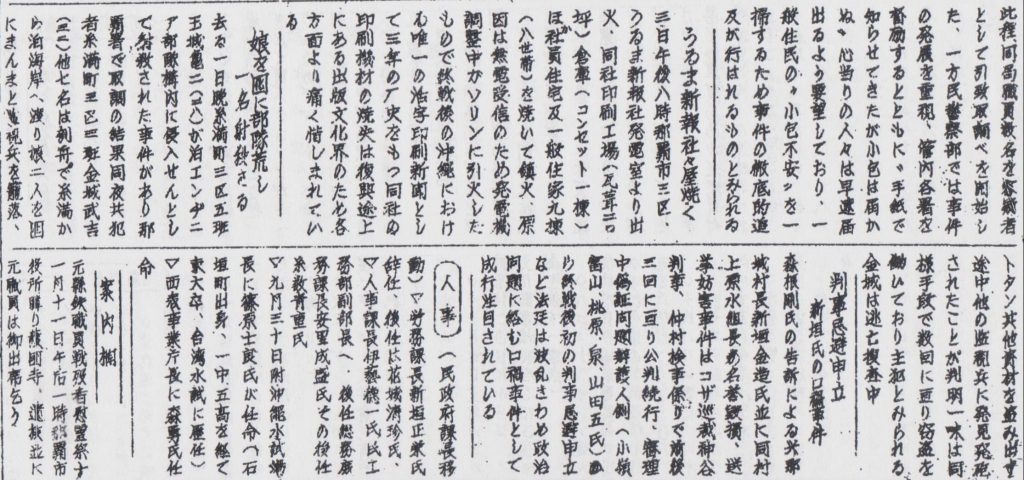 此程同高職員数名を容疑者
として引致取調べを開始し
た、一方民警察部では事件
の発展を重視、管内各署を
督励するとともに〃手紙で
知らせてきたが小包は届か
ぬ〃心当りの人々は早速届
出るよう要望しており、一
般住民の〃小包不安〃を一
掃するため事件の徹底的追
及が行はれるものとみられる
うるま新報社々屋焼く
三日午後八時那覇市三区、
うるま新報社発電室より出
火、同社印刷工場
坪)倉庫(コンセット一棟)
ほか社員住宅及一般住家九棟
(八世帯)を焼いて鎮火、原
因は無電受信のため発電機
調整中ガソリンに引火した
もので終戦後の沖縄におけ
る唯一の活字印刷新聞とし
て三年の歴史をもつ同社の
印刷機材の焼失は復興途上
にある出版文化界のため各
方面より痛く惜しまれてい
る
娘を囮に部隊荒し
一名射殺さる
去る一日晩糸満町三区五班
玉城亀二(二八)が泊エンヂニ
ア部隊構内に侵入せんとし
て射殺された事件があり那
覇署で取調の結果同夜共犯
者糸満町三区三班金城武吉
(三一)他七名は刳舟で糸満か
ら泊海岸へ渡り娘二人を囮
にまんまと監視兵を籠落、
トタン其他資材を盗み出す
途中他の監視兵に発見発砲
されたことが判明一味は同
様手段で数回に亘り窃盗を
働いており主犯とみられる
金城は逃亡捜査中
判事忌避申立
新垣氏の口禍事件
森根剛氏の告訴による大那
城村長新垣金造氏並に同村
上原水組長の名誉毀損、選
挙妨害事件はコザ巡裁神谷
判事、仲村検事係りで前後
三回に亘り公判続行、審理
中偽証問題弁護人側(小嶺
富山、桃原、泉、山田五氏)か
ら終戦後初の判事忌避申立
など法廷は波乱きわめ政治
問題に絡む口禍事件として
成行注目されている
人事
(民政府課長移
動)▽労務課長新垣正栄氏
辞任、後任は花城清珍氏、
▽人事課長伊芸徳一氏工
務部副部長へ、後任総務庶
務課長安里成盛氏その後任
糸数青重氏
▽九月三十日附沖縄水試場
長に篠原士郎氏が任命(石
垣町出身、一中五高を経て
東大卒、台湾水試に歴任)
▽西表事業庁長に森寿氏任
命
案内欄
元県練職員戦残者慰霊祭す
一月十一日午后一時那覇市
役所隣り護国寺、遺族並に
元職員は御出席乞う